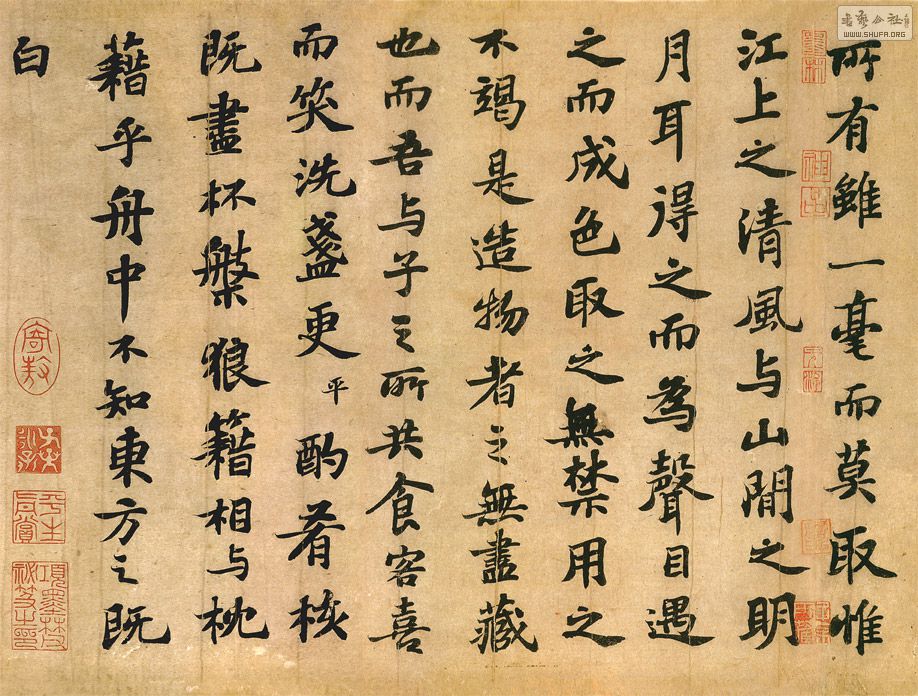 所有雖一毫而莫取惟
江上之清風与山間之明
月耳得之而為聲目遇
之而成色取之無禁用之
不竭是造物者之無盡藏
也而吾与子之所共食客喜
而笑洗盞更平酌肴核
既盡杯槃狼籍相与枕
藉乎舟中不知東方之既
白
WWW.SHUFA.ORG